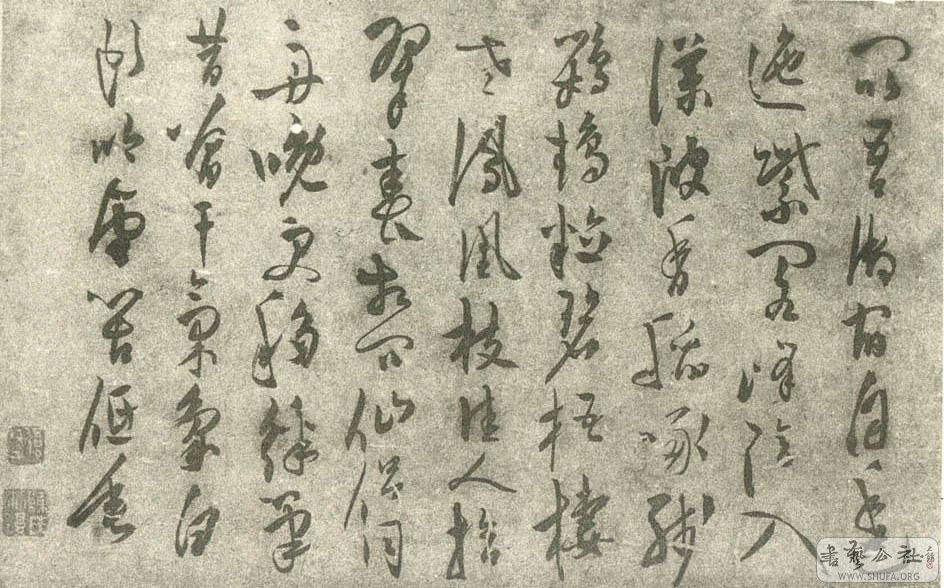 昆吾御宿自逶
迤紫閣峰陰入
渼陂香稻啄殘
鸚鵡粒碧梧棲
老鳳凰枝佳人拾
翠春相問仙侶同
舟晚更移綵筆
昔曾干氣象白
頭吟望苦低垂
書藝公社
WWW.SHUFA.ORG